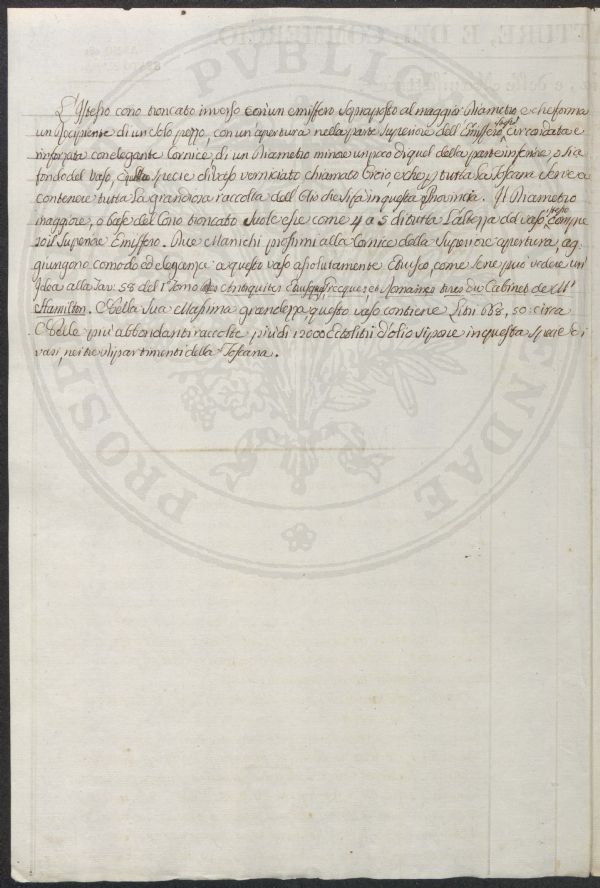 L'Istesso cono troncato inverso con un emisfero soprapposto al maggior Diametro, e che forma
un Recipiente di un solo pezzo, con un apertura nella parte superiore dell'Emisfero stesso, circondata e
rinforzata con elegante Cornice, di un Diametro minore un poco di quel della parte inferiore, o sia
fondo del vaso, è quella specie di vaso verniciato chiamato Orcio, e che per tutta la Toscana serve a
contenere tutta la grandiosa raccolta dell'Olio che si fa in questa Provincia. Il Diametro
maggiore, o base del Cono troncato suole esser come 4 a 5 di tutta l'altezza del vaso stesso, compre
so il superiore Emisfero. Due Manichi prossimi alla Cornice della superiore apertura, ag
giungono comodo ed eleganza a questo vaso assolutamente Etrusco, come se ne può vedere un'
Idea alla Tav. 58 del 1º Tomo Antiquites Etrusques, Grecques, et Romaines tirées du Cabinet de Mr.
Hamilton. Nella sua Massima grandezza, questo vaso contiene Litri 638, 50 circa
Nelle più abbondanti raccolte più di 12000 Ectolitri d'olio si pone in questa specie di
vasi, nei tre dipartimenti della Toscana.
PVBLICO
PROSP
ENDAE